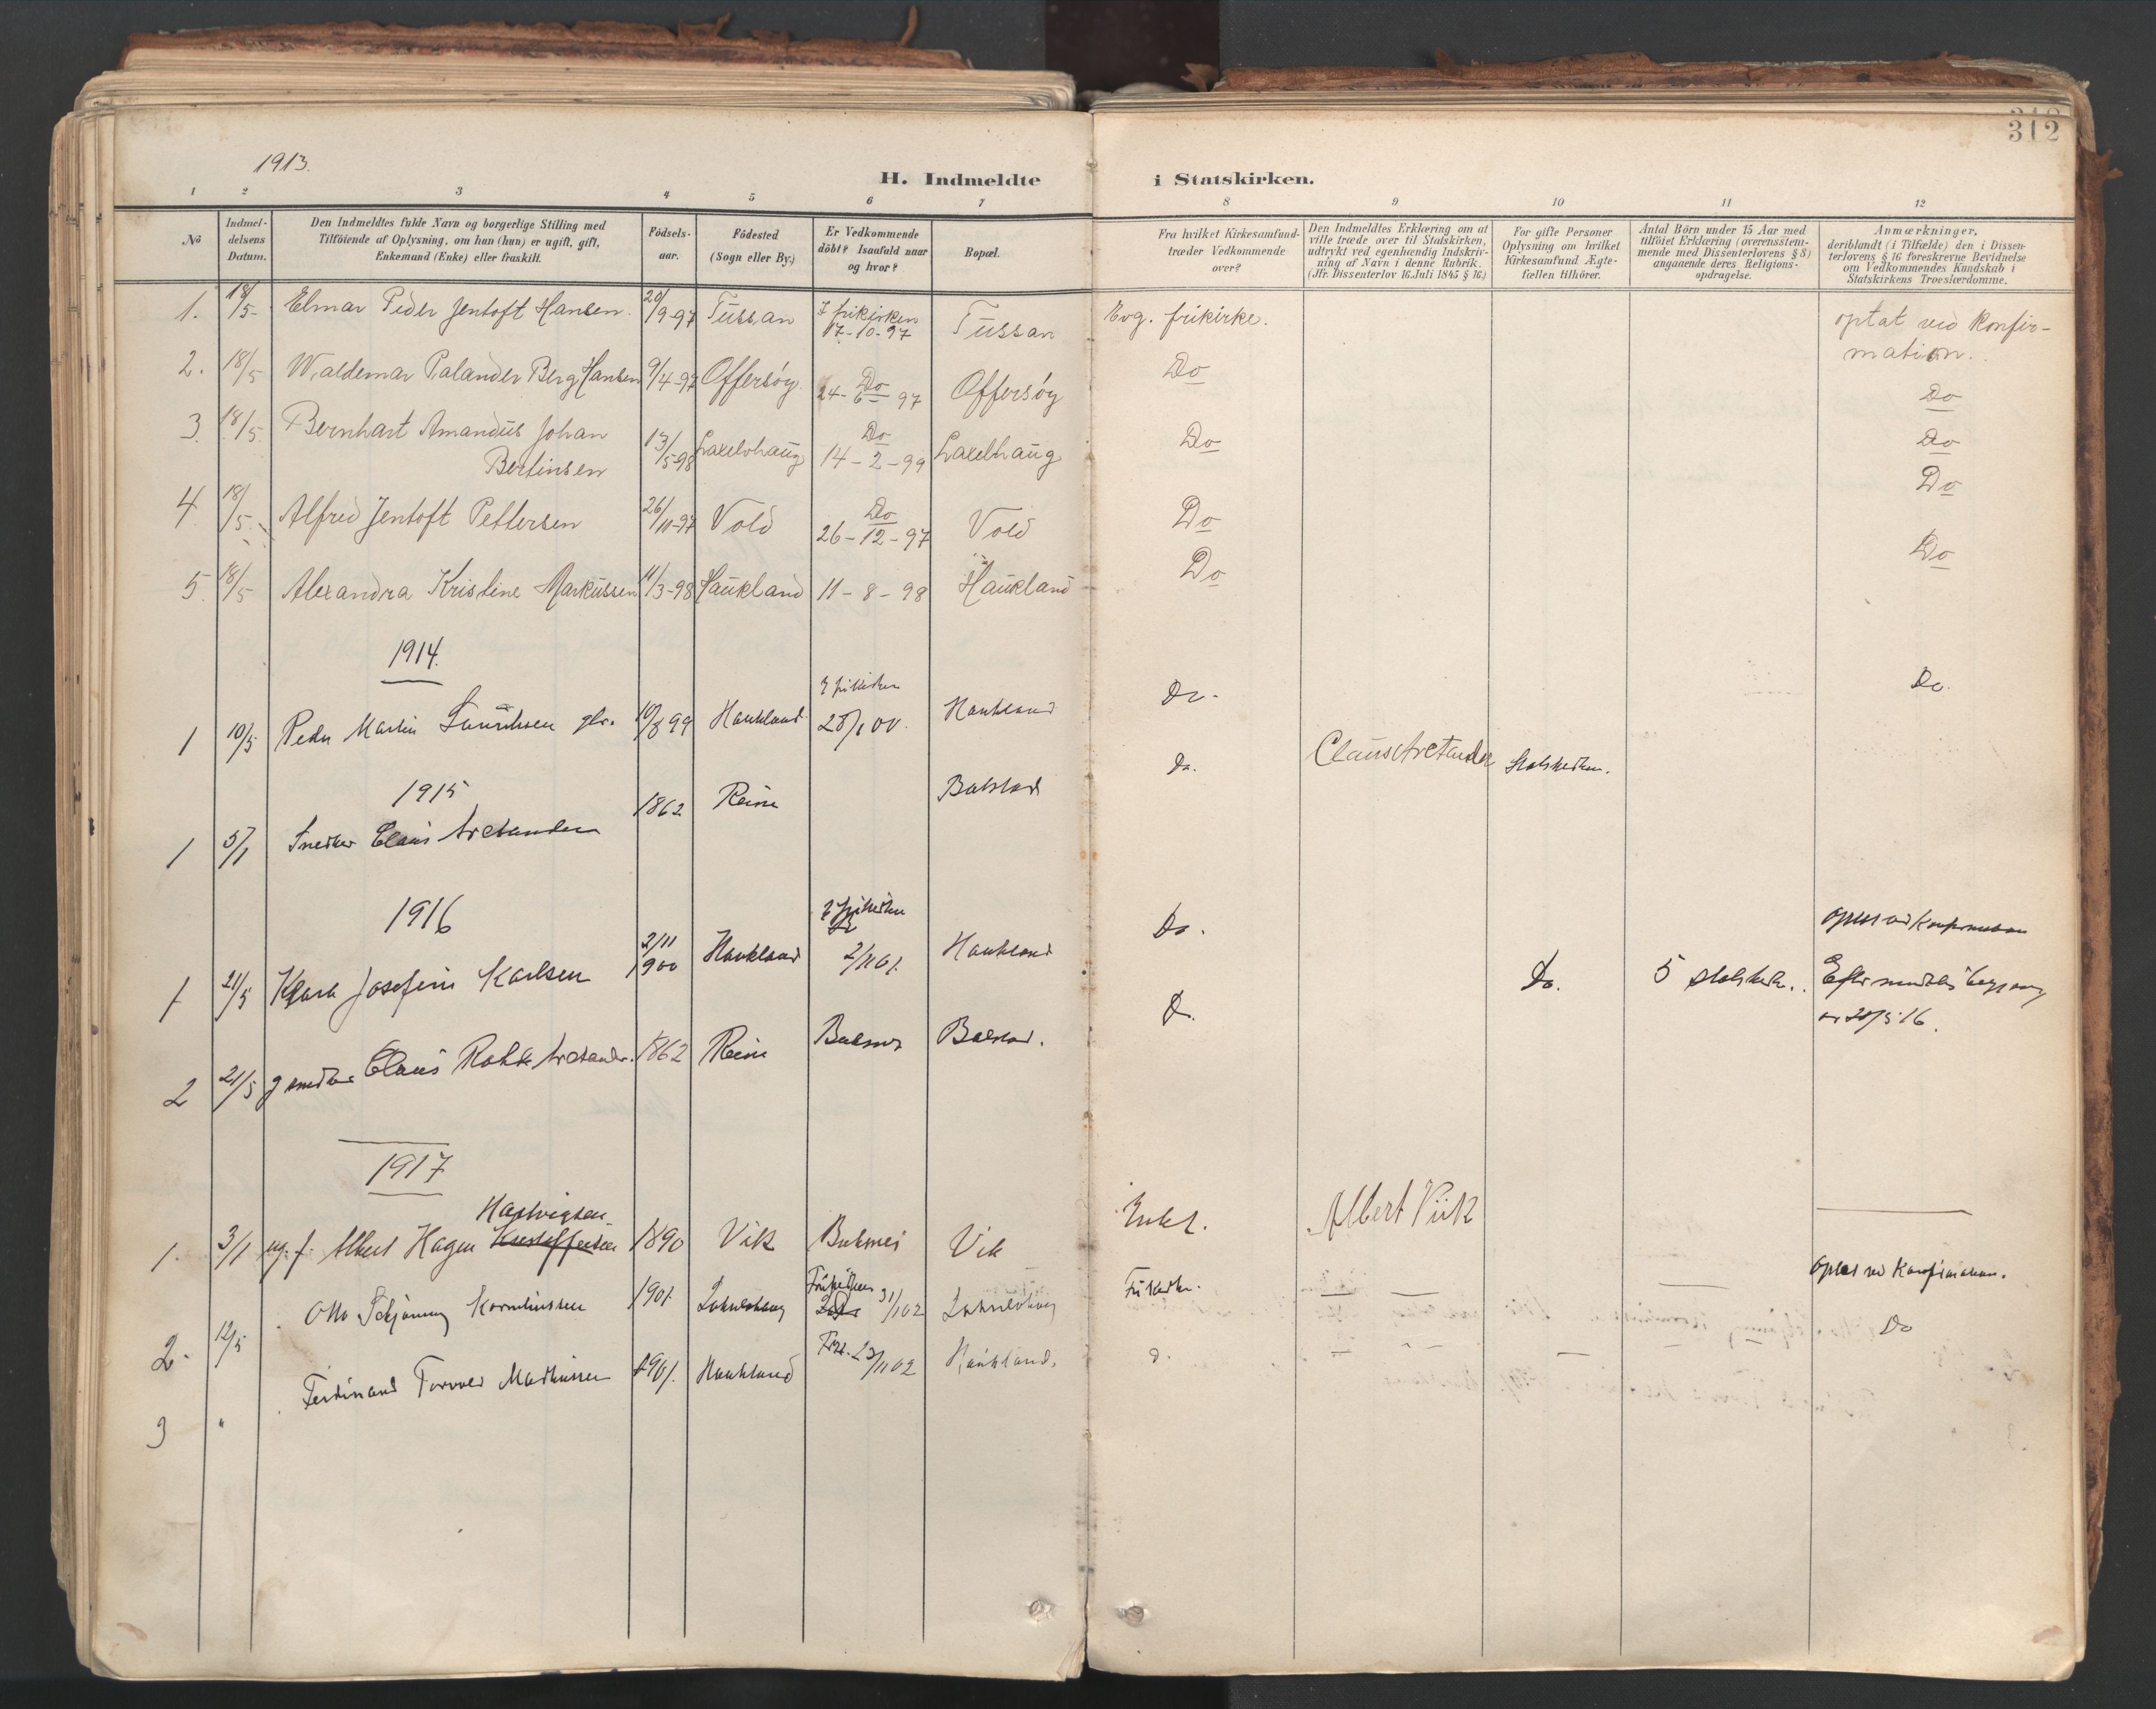 312
1913.
H. Indmeldte i Statskirken.
1 2 3 4 5 6 7 8 9 10 11 12
No
Indmel-
delsens
Datum.
Den Indmeldtes fulde Navn og borgerlige Stilling med
Tilföiende af Oplysning, om han (hun) er ugift, gift,
Enkemand (Enke) eller fraskilt.
Födsels-
aar.
Födested
(Sogn eller By.)
Er Vedkommende
döbt? Isaafald naar
og hvor?
Bopæl.
Fra hvilket Kirkesamfund
træder Vedkommende
over?
Den Indmeldtes Erklæring om at
ville træde over til Statskirken,
udtrykt ved egenhændig Indskriv-
ning af Navn i denne Rubrik.
(Jfr. Dissenterlov 16. Juli 1845 § 16.)
For gifte Personer
Oplysning om hvilket
Kirkesamfund Ægte-
fællen tilhörer.
Antal Börn under 15 Aar med
tilföiet Erklæring (overensstem-
mende med Dissenterlovens § 8)
angaaende deres Religions-
opdragelse.
Anmærkninger,
deriblandt (i Tilfælde) den i Dissen-
terlovens § 16 foreskrevne Bevidnelse
om Vedkommendes Kundskab i
Statskirkens Troeslærdomme.
1. 18/5 Elmar Peder Jentoft Hansen. 20/9-97 Tussan I frikirken 17-10-97 Tussan Evg. frikirke. optat ved konfir-
mation.
2. 18/5 Waldemar Palander Berg Hansen 9/4-97 Offersöy. Do 24-6-97 Offersöy Do Do
3. 18/5 Bernhart Amandus Johan
Bertinsen 13/5-98 Laxelvhaug Do 14-2-99 Laxelhaug Do Do
4 18/5 Alfred Jentoft Pettersen 26/11-97 Vold Do 26-12-97 Vold Do Do
5. 18/5 Alexandra Kristine Markussen 11/3-98 Haukland 11-8-98 Haukland Do Do
1914.
1 10/5 Peder Martin 10/8 99 Haukland I frikirken Haukland Do. Do.
1915
1 5/1 Snedker Claus Arctander 1862 Reine Balstad Do. Claus Arctander Statskirken.
1916
1 21/5 Klara Josefine Karlsen 2/11 1900 Haukland I frikirken Haukland Do.
2 21/5 Claus Arctander. 1862 Reine Balstad. D. Do. 5 Statskirk. Efter
1917
Hartvigsen
1. 3/1 Albert Hagen Kristoffersen 1890 Vik Buksnes Vik Albert Viik
2. 12/5 Otto Schjönning Korneliussen 1901 Frikirken 31/1 02 Frikirke. optat ved Konfirmation.
3 " Ferdinand Torvald Markussen 1901. Haukland Haukland. Do